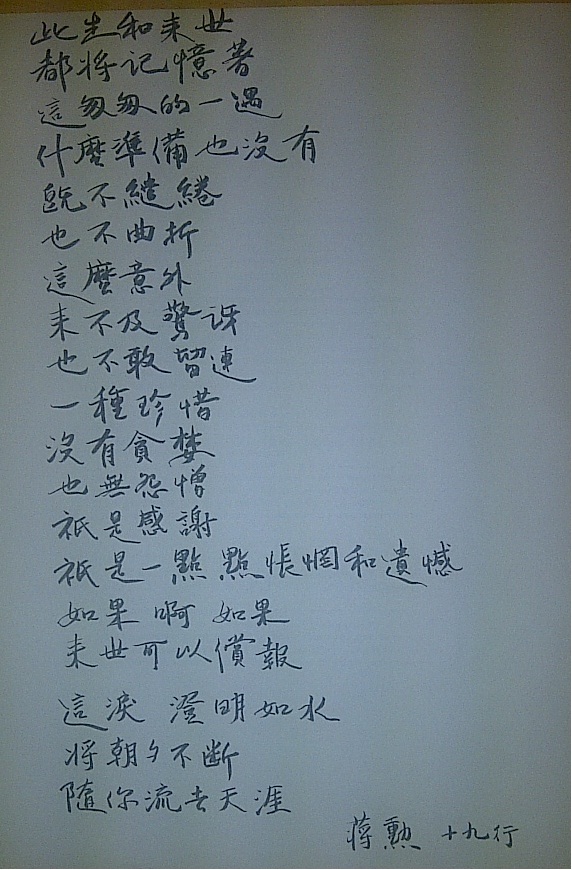 此生和来世
都將记憶著
這匆匆的一遇
什麼準備也沒有
既不繾綣
也不曲折
這麼意外
来不及驚訝
也不敢留連
一種珍惜
沒有貪婪
也無怨憎
祇是感謝
祇是一點點悵惘和遺憾
如果啊如果
来世可以償報
這淚 澄明如水
將朝夕不断
隨你流去天涯
蒋勲 十九行